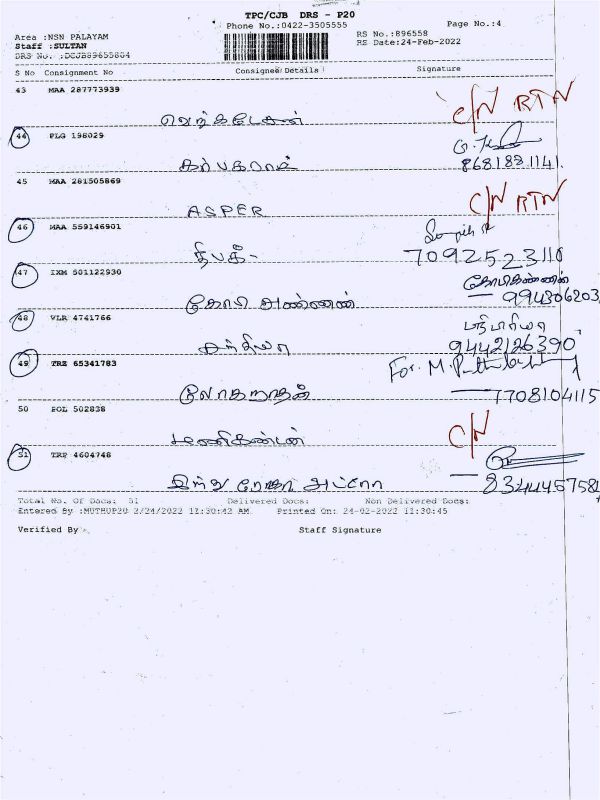 TPC/CJB DRS - P20
Phone No.:0422-3505555
Page No.:4
Area :NSN PALAYAM
RS No.:896558
Staff :SULTAN
RS Date:24-Feb-2022
DRS No. :DCJB89655804
S No Consignment No Consignee Details Signature
43 MAA 287773939
வெங்கடேசன்
C/N RTN
44 PLG 198029
கற்பகராம்
8681881141.
45 MAA 281505869
ASPER
C/N RTN
46 MAA 559146901
தீபக் -
7092523110
47 IXM 501122930
கோபி கண்ணன்
கோபிகண்ணன்
994306203
48 VLR 4741766
9442126390
49 TRZ 65341783
லோகநாதன்
For M.
7708104115
50 POL 502838
மணிகண்டன்
C/N
51 TRP 4604748
இந்து
8344457581
Total No. Of Docs: 51 Delivered Docs: Non Delivered Docs:
Entered By :MUTHUP20 2/24/2022 11:30:42 AM Printed On: 24-02-2022 11:30:45
Verified By Staff Signature